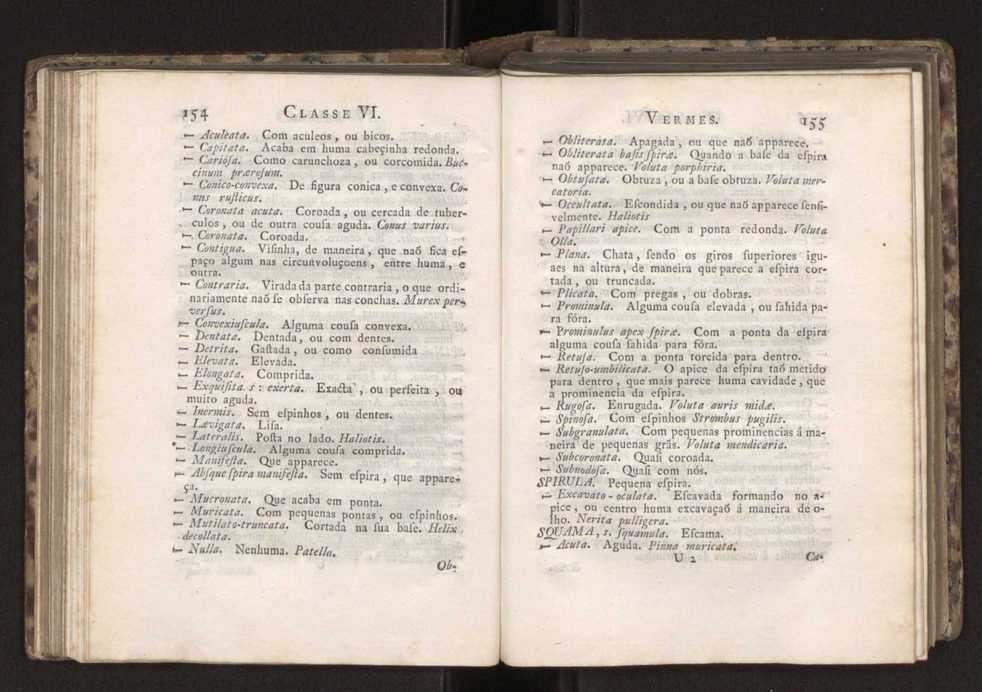 154 CLASSE VI.
— Aculeata. Com aculeos, ou bicos.
— Capitata. Acaba em huma cabeçinha redonda.
— Carióſa. Como carunchoza, ou corcomida. Buc-
cinum præroſum.
— Conico-convexa. De figura conica, e convexa. Co-
nus ruſticus.
— Coronata acuta. Coroada, ou cercada de tuber-
culos, ou de outra couſa aguda. Conus varius.
— Coronata. Coroada.
— Contigua. Viſinha, de maneira, que naõ fica eſ-
paço algum nas circunvoluçoens, entre huma, e
outra.
— Contraria. Virada da parte contraria, o que ordi-
nariamente naõ ſe obſerva nas conchas. Murex per-
verſus.
— Convexiuſcula. Alguma couſa convexa.
— Dentata. Dentada, ou com dentes.
— Detrita. Gaſtada, ou como conſumida
— Elevata. Elevada.
— Elongata. Comprida.
— Exquiſita. s: exerta. Exacta, ou perfeita, ou
muito aguda.
— Inermis. Sem eſpinhos, ou dentes.
— Lævigata. Liſa.
— Lateralis. Poſta no lado. Haliotis.
— Longiuſcula. Alguma couſa comprida.
— Manifeſta. Que apparece.
— Abſque ſpira manifeſta. Sem eſpira, que appare-
ça.
— Mucronata. Que acaba em ponta.
— Muricata. Com pequenas pontas, ou eſpinhos.
— Mutilato-truncata. Cortada na ſua baſe. Helix
decollata.
— Nulla. Nenhuma. Patella.
Ob-
VERMES. 155
— Obliterata. Apagada, ou que naõ apparece.
— Obliterata baſis ſpiræ. Quando a baſe da eſpira
naõ apparece. Voluta porphiria.
— Obtuſata. Obtuza, ou a baſe obtuza. Voluta mer-
catoria.
— Occultata. Eſcondida, ou que naõ apparece ſenſi-
velmente. Haliotis
— Papillari apice. Com a ponta redonda. Voluta
Olla.
— Plana. Chata, ſendo os giros ſuperiores igu-
aes na altura, de maneira que parece a eſpira cor-
tada, ou truncada.
— Plicata. Com pregas, ou dobras.
— Prominula. Alguma couſa elevada, ou ſahida pa-
ra fóra.
— Prominulus apex ſpiræ. Com a ponta da eſpira
alguma couſa ſahida para fóra.
— Retuſa. Com a ponta torcida para dentro.
— Retuſo-umbilicata. O apice da eſpira taõ metido
para dentro, que mais parece huma cavidade, que
a prominencia da eſpira.
— Rugoſa. Enrugada. Voluta auris midæ.
— Spinoſa. Com eſpinhos Strombus pugilis.
— Subgranulata. Com pequenas prominencias á ma-
neira de pequenas grãs. Voluta mendicaria.
— Subcoronata. Quaſi coroada.
— Subnodoſa. Quaſi com nós.
SPIRULA. Pequena eſpira.
— Excavato-oculata. Eſcavada formando no a-
pice, ou centro huma excavaçaõ á maneira de o-
lho. Nerita pulligera.
SQUAMA, s. ſquamula. Eſcama.
— Acuta. Aguda. Pinna muricata.
U 2 Ca-